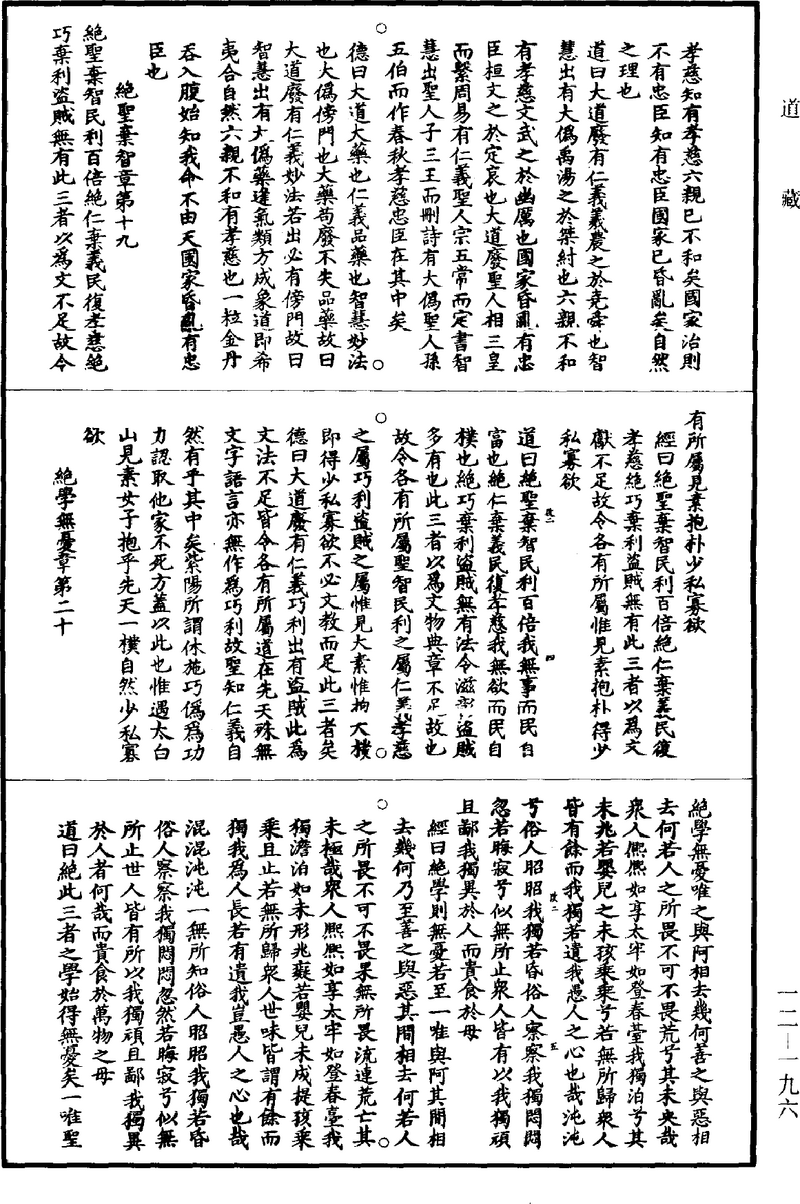 道藏
孝慈知有孝慈六親已不和矣國家治則
不有忠臣知有忠臣國家已昏亂矣自然
之理也
道曰大道廢有仁義羲農之於堯舜也智
慧出有大偽禹湯之於桀紂也六親不和
有孝慈文武之於幽厲也國家昏亂有忠
臣桓文之於定哀也大道廢聖人相三皇
而繫周易有仁義聖人宗五常而定書智
慧出聖人子三王而刪詩有大偽聖人孫
五伯而作春秋孝慈忠臣在其中矣
德曰大道大藥也仁義品藥也智慧妙法
也大偽傍門也大藥苟廢不失品藥故曰
大道廢有仁義妙法若出必有傍門故曰
智慧出有大偽藥逢氣類方成象道即希
夷合自然六親不和有孝慈也一粒金丹
吞入腹始知我命不由天國家昏亂有忠
臣也
絕聖棄智章第十九
絕聖棄智民利百倍絕仁棄義民復孝慈絕
巧棄利盜賊無有此三者以為文不足故令
有所屬見素抱朴少私寡欲
經曰絕聖棄智民利百倍絕仁棄義民復
孝慈絕巧棄利盜賊無有此三者以為文
獻不足故令各有所屬惟見素抱朴得少
私寡欲
道曰絕聖棄智民利百倍我無事而民自
富也絕仁棄義民復孝慈我無欲而民自
樸也絕巧棄利盜賊無有法令滋彰盜賊
多有也此三者以為文物典章不足故也
故令各有所屬聖智民利之屬仁義孝慈
之屬巧利盜賊之屬惟見大素惟抱大樸
即得少私寡欲不必文教而足此三者矣
德曰大道廢有仁義巧利出有盜賊此為
文法不足皆令各有所屬道在先天殊無
文字語言亦無作為巧利故聖知仁義自
然有乎其中矣紫陽所謂休施巧偽為功
力認取他家不死方蓋以此也惟遇太白
山見素女子抱乎先天一樸自然少私寡
欲
絕學無憂章第二十
絕學無憂唯之與阿相去幾何善之與惡相
去何若人之所畏不可不畏荒兮其未央哉
衆人熙熙如享太牢如登春臺我獨泊兮其
未兆若嬰兒之未孩乘乘兮若無所歸衆人
皆有餘而我獨若遺我愚人之心也哉沌沌
兮俗人昭昭我獨若昏俗人察察我獨悶悶
忽若晦寂兮似無所止衆人皆有以我獨頑
且鄙我獨異於人而貴食於母
經曰絕學則無憂若至一唯與阿其間相
去幾何乃至善之與惡其間相去何若人
之所畏不可不畏果無所畏流連荒亡其
未極哉衆人熙熙如享太牢如登春臺我
獨澹泊如未形兆嶷若嬰兒未成提孩乘
乘且止若無所歸衆人世味皆謂有餘而
獨我為人長若有遺我豈愚人之心也哉
混混沌沌一無所知俗人昭昭我獨若昏
俗人察察我獨悶悶忽然若晦寂兮似無
所止世人皆有所以我獨頑且鄙我獨異
於人者何哉而貴食於萬物之母
道曰絕此三者之學始得無憂矣一唯聖
一二—一九六